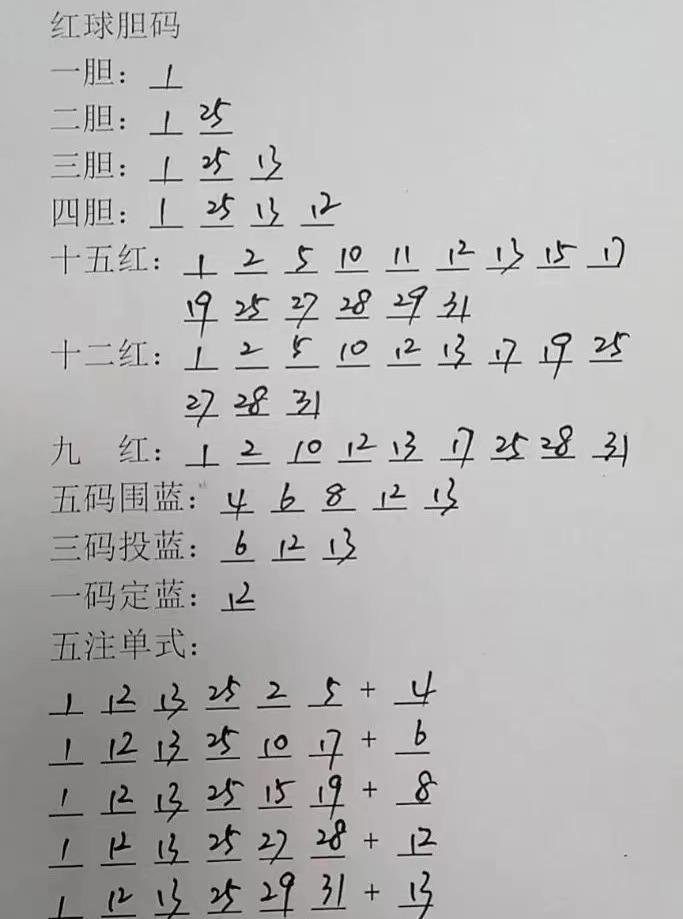 红球胆码
一胆：1
二胆：1 25
三胆：1 25 13
四胆：1 25 13 12
十五红：1 2 5 10 11 12 13 15 17
19 25 27 28 29 31
十二红：1 2 5 10 12 13 17 19 25
27 28 31
九 红：1 2 10 12 13 17 25 28 31
五码围蓝：4 6 8 12 13
三码投蓝：6 12 13
一码定蓝：12
五注单式：
1 12 13 25 2 5 + 4
1 12 13 25 10 17 + 6
1 12 13 25 15 19 + 8
1 12 13 25 27 28 + 12
1 12 13 25 29 31 + 13